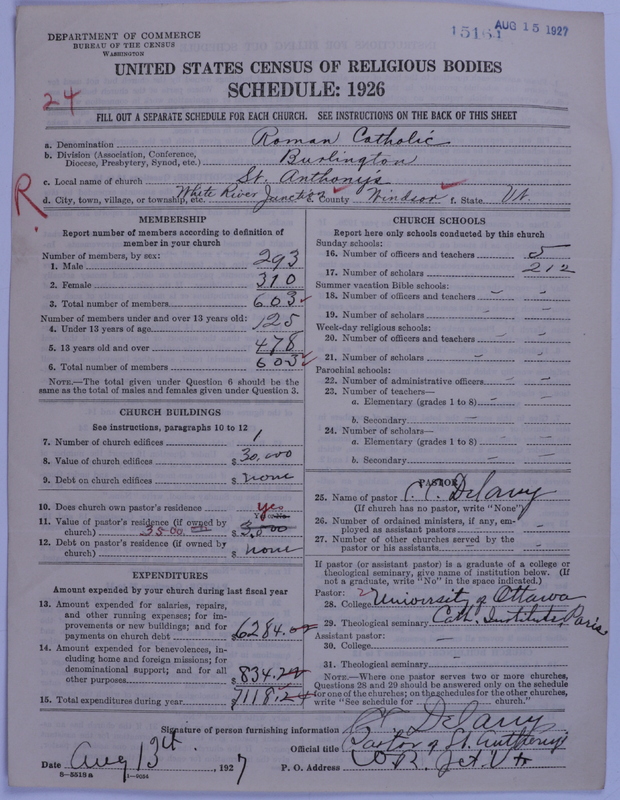 DEPARTMENT OF COMMERCE
BUREAU OF THE CENSUS
WASHINGTON
15161 AUG 15 1927
UNITED STATES CENSUS OF RELIGIOUS BODIES
SCHEDULE: 1926
24
FILL OUT A SEPARATE SCHEDULE FOR EACH CHURCH. SEE INSTRUCTIONS ON THE BACK OF THIS SHEET
a. Denomination Roman Catholic
b. Division (Association, Conference, Diocese, Presbytery, Synod, etc.) Burlington
c. Local name of church St. Anthony's
R.
d. City, town, village, or township, etc. White River Junction e. County Windsor f. State Vt.
MEMBERSHIP
Report number of members according to definition of
member in your church
Number of members, by sex:
1. Male 293
2. Female 310
3. Total number of members 603
Number of members under and over 13 years old:
4. Under 13 years of age 125
5. 13 years old and over 478
6. Total number of members 603
NOTE.—The total given under Question 6 should be
same as the total of males and females given under Question 3.
CHURCH BUILDINGS
See instructions, paragraphs 10 to 12
7. Number of church edifices 1
8. Value of church edifices $ 30,000
9. Debt on church edifices $ none
10. Does church own pastor's residence yes
Yes or No
11. Value of pastor's residence (if owned by
church) 3500 $ 3500
12. Debt on pastor's residence (if owned by
church) $ none
EXPENDITURES
Amount expended by your church during last fiscal year
13. Amount expended for salaries, repairs,
and other running expenses; for im-
provements or new buildings; and for
payments on church debt $ 6284.
14. Amount expended for benevolences, in-
cluding home and foreign missions; for
denominational support; and for all
other purposes $ 834.24
15. Total expenditures during year $ 7118.24
CHURCH SCHOOLS
Report here only schools conducted by this church
Sunday schools:
16. Number of officers and teachers 5
17. Number of scholars 212
Summer vacation Bible schools:
18. Number of officers and teachers — —
19. Number of scholars — —
Week-day religious schools:
20. Number of officers and teachers — —
21. Number of scholars — —
Parochial schools:
22. Number of administrative officers — —
23. Number of teachers—
a. Elementary (grades 1 to 8) — —
b. Secondary — —
24. Number of scholars—
a. Elementary (grades 1 to 8) — —
b. Secondary — —
PASTOR
25. Name of pastor C. C. Delany
(If church has no pastor, write "None")
26. Number of ordained ministers, if any, em-
ployed as assistant pastors —
27. Number of other churches served by the
pastor or his assistants —
If pastor (or assistant pastor) is a graduate of a college or
theological seminary, give name of institution below. (If
not a graduate, write "No" in the space indicated.)
Pastor: 2
28. College University of Ottawa
29. Theological seminary Cath. Institute, Paris
Assistant pastor:
30. College —
31. Theological seminary —
NOTE.—Where one pastor serves two or more churches,
Questions 28 and 29 should be answered only on the schedule
for one of the churches; on the schedules for the other churches,
write "See schedule for church."
Signature of person furnishing information C. C. Delany
Official title Pastor of St. Anthony's
Date Aug 13th, 1927 P. O. Address W. R. Jct. Vt
8—5518a 1—9054